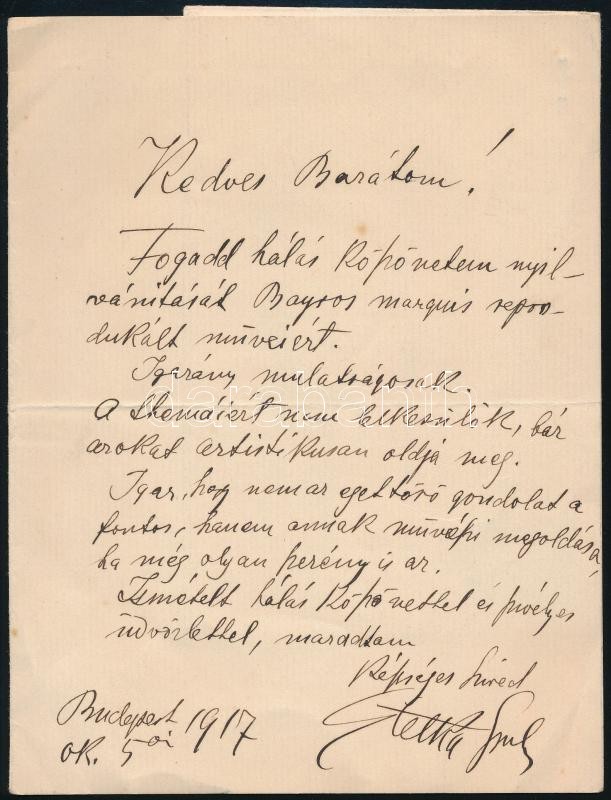 Kedves Barátom!
Fogadd hálás köszönetem nyil-
vánítását Bayros marquis repro-
dukált műveiért.
Igazán mulatságosak.
A themáiért nem lelkesülök, bár
azokat artistikusan oldja meg.
Igaz, hogy nem az égettörő gondolat a
fontos, hanem annak művészi megoldása,
ha még olyan szerény is az.
Ismételt hálás köszönettel és szívélyes
üdvözlettel, maradtam
híved
Budapest 1917
ok. 5 én
darabanth